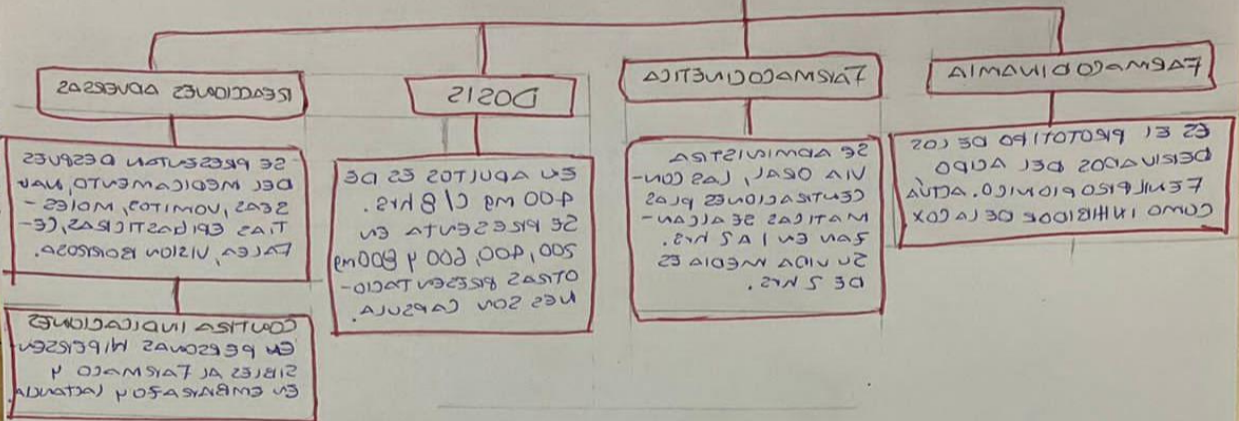 FARMACODINAMIA
ES EL PROTOTIPO DE LOS
DERIVADOS DEL ACIDO
FENILPROPIONICO. ACTUA
COMO INHIBIDOR DE LA COX
FARMACOCINETICA
SE ADMINISTRA
VIA ORAL, LAS CON-
CENTRACIONES PLAS
MATICAS SE ALCAN-
ZAN EN 1 A 2 Hrs.
SU VIDA MEDIA ES
DE 2 Hrs.
DOSIS
EN ADULTOS ES DE
400 mg C/8 hrs.
SE PRESENTA EN
200, 400, 600 y 800mg
OTRAS PRESENTACIO-
NES SON CAPSULA.
REACCIONES ADVERSAS
SE PRESENTAN DESPUES
DEL MEDICAMENTO, NAU
SEAS, VOMITOS, MOLES-
TIAS EPIGASTRICAS, CE-
FALEA, VISION BORROSA.
CONTRA INDICACIONES
EN PERSONAS HIPERSEN-
SIBLES AL FARMACO Y
EN EMBARAZO Y LACTANCIA.